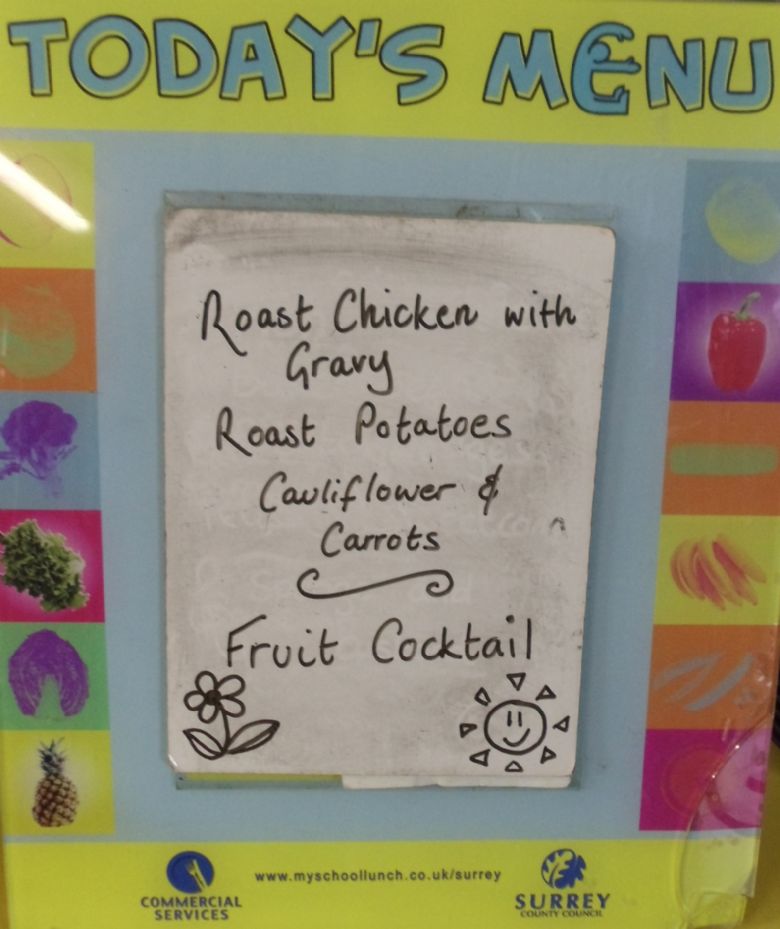 TODAY'S MENU
Roast Chicken with
Gravy
Roast Potatoes
Cauliflower &
Carrots
Fruit Cocktail
www.myschoollunch.co.uk/surrey
COMMERCIAL
SERVICES
SURREY
COUNTY COUNCIL